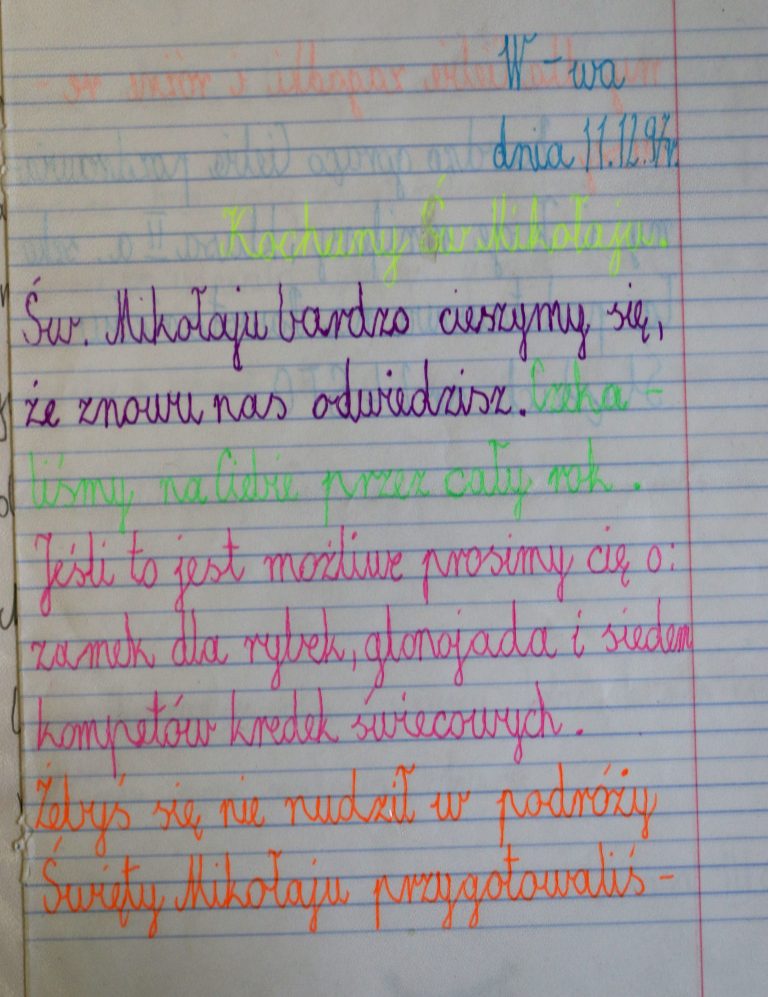 W-wa
dnia 11.12.97r.
Kochany Św Mikołaju.
Św. Mikołaju bardzo cieszymy się,
że znowu nas odwiedzisz. Czeka-
liśmy na Ciebie przez cały rok.
Jeśli to jest możliwe prosimy cię o:
zamek dla rybek, glonojada i siedem
kompetów kredek świecowych.
Żebyś się nie nudził w podróży
Święty Mikołaju przygotowaliś-